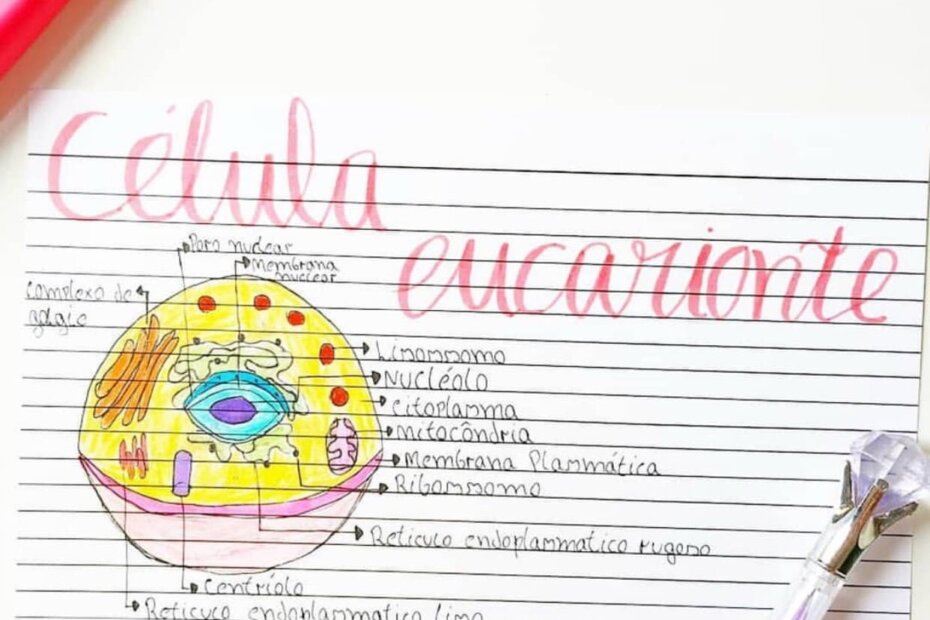 Célula
eucarionte
Poro nuclear
Membrana
nuclear
Complexo de
golgie
Lisossomo
Nucléolo
Citoplasma
Mitocôndria
Membrana Plasmática
Ribossomo
Reticulo endoplasmatico rugoso
Centríolo
Reticulo endoplasmatico liso